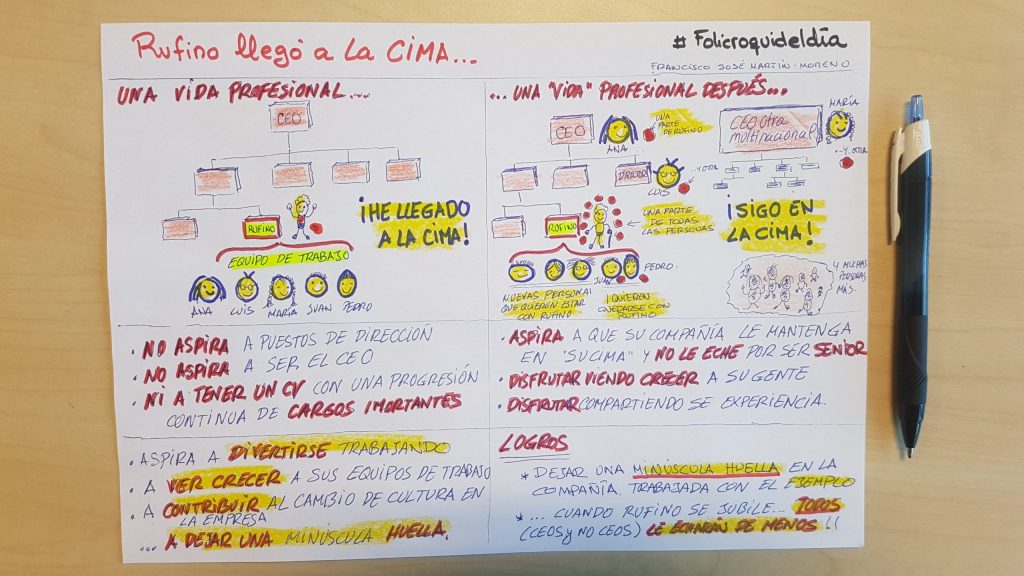 Rufino llegó a La CIMA...
# Folicroquideldía
FRANCISCO JOSÉ MARTÍN-MORENO
UNA VIDA PROFESIONAL...
CEO
RUFINO
¡HE LLEGADO
A LA CIMA!
EQUIPO DE TRABAJO
ANA
LUIS
MARÍA
JUAN
PEDRO
... UNA "VIDA" PROFESIONAL DESPUÉS...
CEO
ANA
UNA
PARTE
DE RUFINO
CEO Otra
multinacional
MARÍA
...Y OTRA
DIRECTOR
LUIS
...Y OTRA
RUFINO
UNA PARTE
DE TODAS
LAS PERSONAS
¡SIGO EN
LA CIMA!
JUAN
PEDRO
NUEVAS PERSONAS
QUE QUIEREN ESTAR
CON RUFINO
¡QUIEREN
QUEDARSE CON
RUFINO
Y MUCHAS
PERSONAS
MÁS.
. NO ASPIRA A PUESTOS DE DIRECCIÓN
. NO ASPIRA A SER EL CEO
. NI A TENER UN CV CON UNA PROGRESIÓN
CONTINUA DE CARGOS IMORTANTES
. ASPIRA A QUE SU COMPAÑÍA LE MANTENGA
EN "SU CIMA" Y NO LE ECHE POR SER SENIOR
. DISFRUTAR VIENDO CRECER A SU GENTE
. DISFRUTAR COMPARTIENDO SE EXPERIENCIA.
. ASPIRA A DIVERTIRSE TRABAJANDO
. A VER CRECER A SUS EQUIPOS DE TRABAJO
. A CONTRIBUIR AL CAMBIO DE CULTURA EN
LA EMPRESA
... A DEJAR UNA MINÚSCULA HUELLA.
LOGROS
* DEJAR UNA MINÚSCULA HUELLA EN LA
COMPAÑÍA. TRABAJADA CON EL EJEMPLO
* ... CUANDO RUFINO SE JUBILE... TODOS
(CEOS y NO CEOS) LE ECHARÁN DE MENOS !!